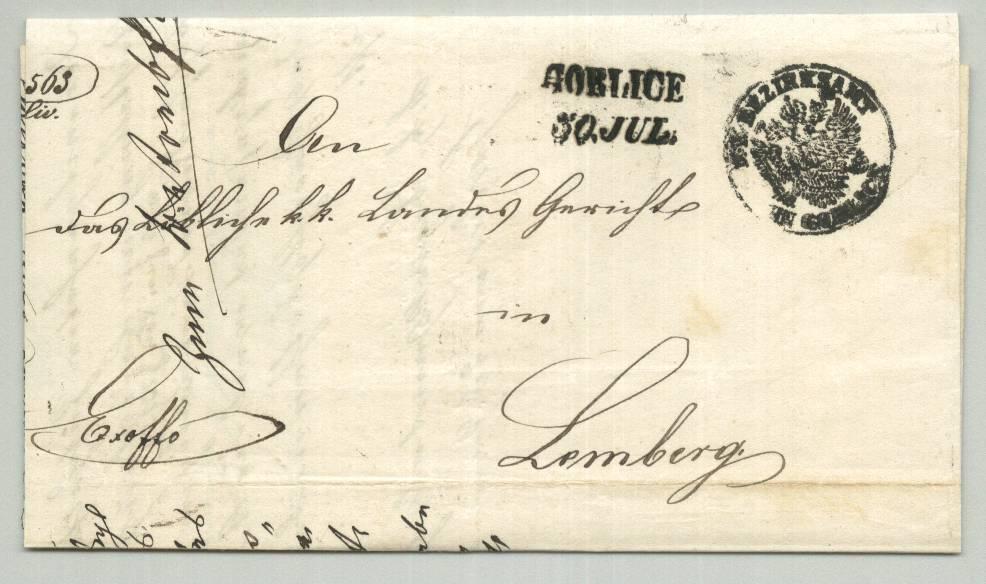 563
Civ.
GORLICE
30. JUL.
BEZIRKSAMT
IN GORLICE
An
das Löbliche k. k. Landes Gericht
in
Lemberg.
Exoffo
Zum